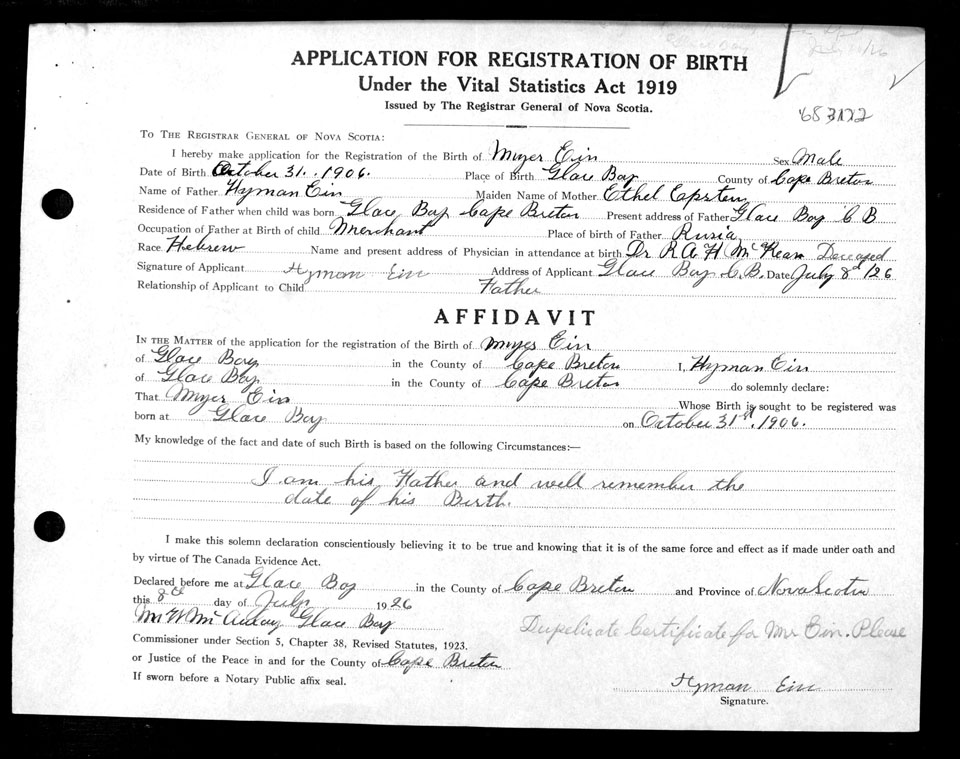 APPLICATION FOR REGISTRATION OF BIRTH
Under the Vital Statistics Act 1919
Issued by The Registrar General of Nova Scotia.
TO THE REGISTRAR GENERAL OF NOVA SCOTIA:
I hereby make application for the Registration of the Birth of Myer Ein Sex Male
Date of Birth October 31. 1906. Place of Birth Glace Bay County of Cape Breton
Name of Father Hyman Ein Maiden Name of Mother Ethel Epsten
Residence of Father when child was born Glace Bay Cape Breton Present address of Father Glace Bay C B
Occupation of Father at Birth of child Merchant Place of birth of Father Rusia
Race Hebrew Name and present address of Physician in attendance at birth Dr R A H McKean Deceased
Signature of Applicant Hyman Ein Address of Applicant Glace Bay C.B. Date July 8th/26
Relationship of Applicant to Child Father
AFFIDAVIT
IN THE MATTER of the application for the registration of the Birth of Myer Ein
of Glace Bay in the County of Cape Breton I, Hyman Ein
of Glace Bay in the County of Cape Breton do solemnly declare:
That Myer Ein Whose Birth is sought to be registered was
born at Glace Bay on October 31st. 1906.
My knowledge of the fact and date of such Birth is based on the following Circumstances:—
I am his Father and well remember the
date of his Berth.
I make this solemn declaration conscientiously believing it to be true and knowing that it is of the same force and effect as if made under oath and
by virtue of The Canada Evidence Act.
Declared before me at Glace Bay in the County of Cape Breton and Province of Nova Scotia
this 8th day of July 1926
Glace Bay
Commissioner under Section 5, Chapter 38, Revised Statutes, 1923.
Dupelicate Certificate for Mr Ein. Please
or Justice of the Peace in and for the County of Cape Breton
If sworn before a Notary Public affix seal.
Hyman Ein
Signature.